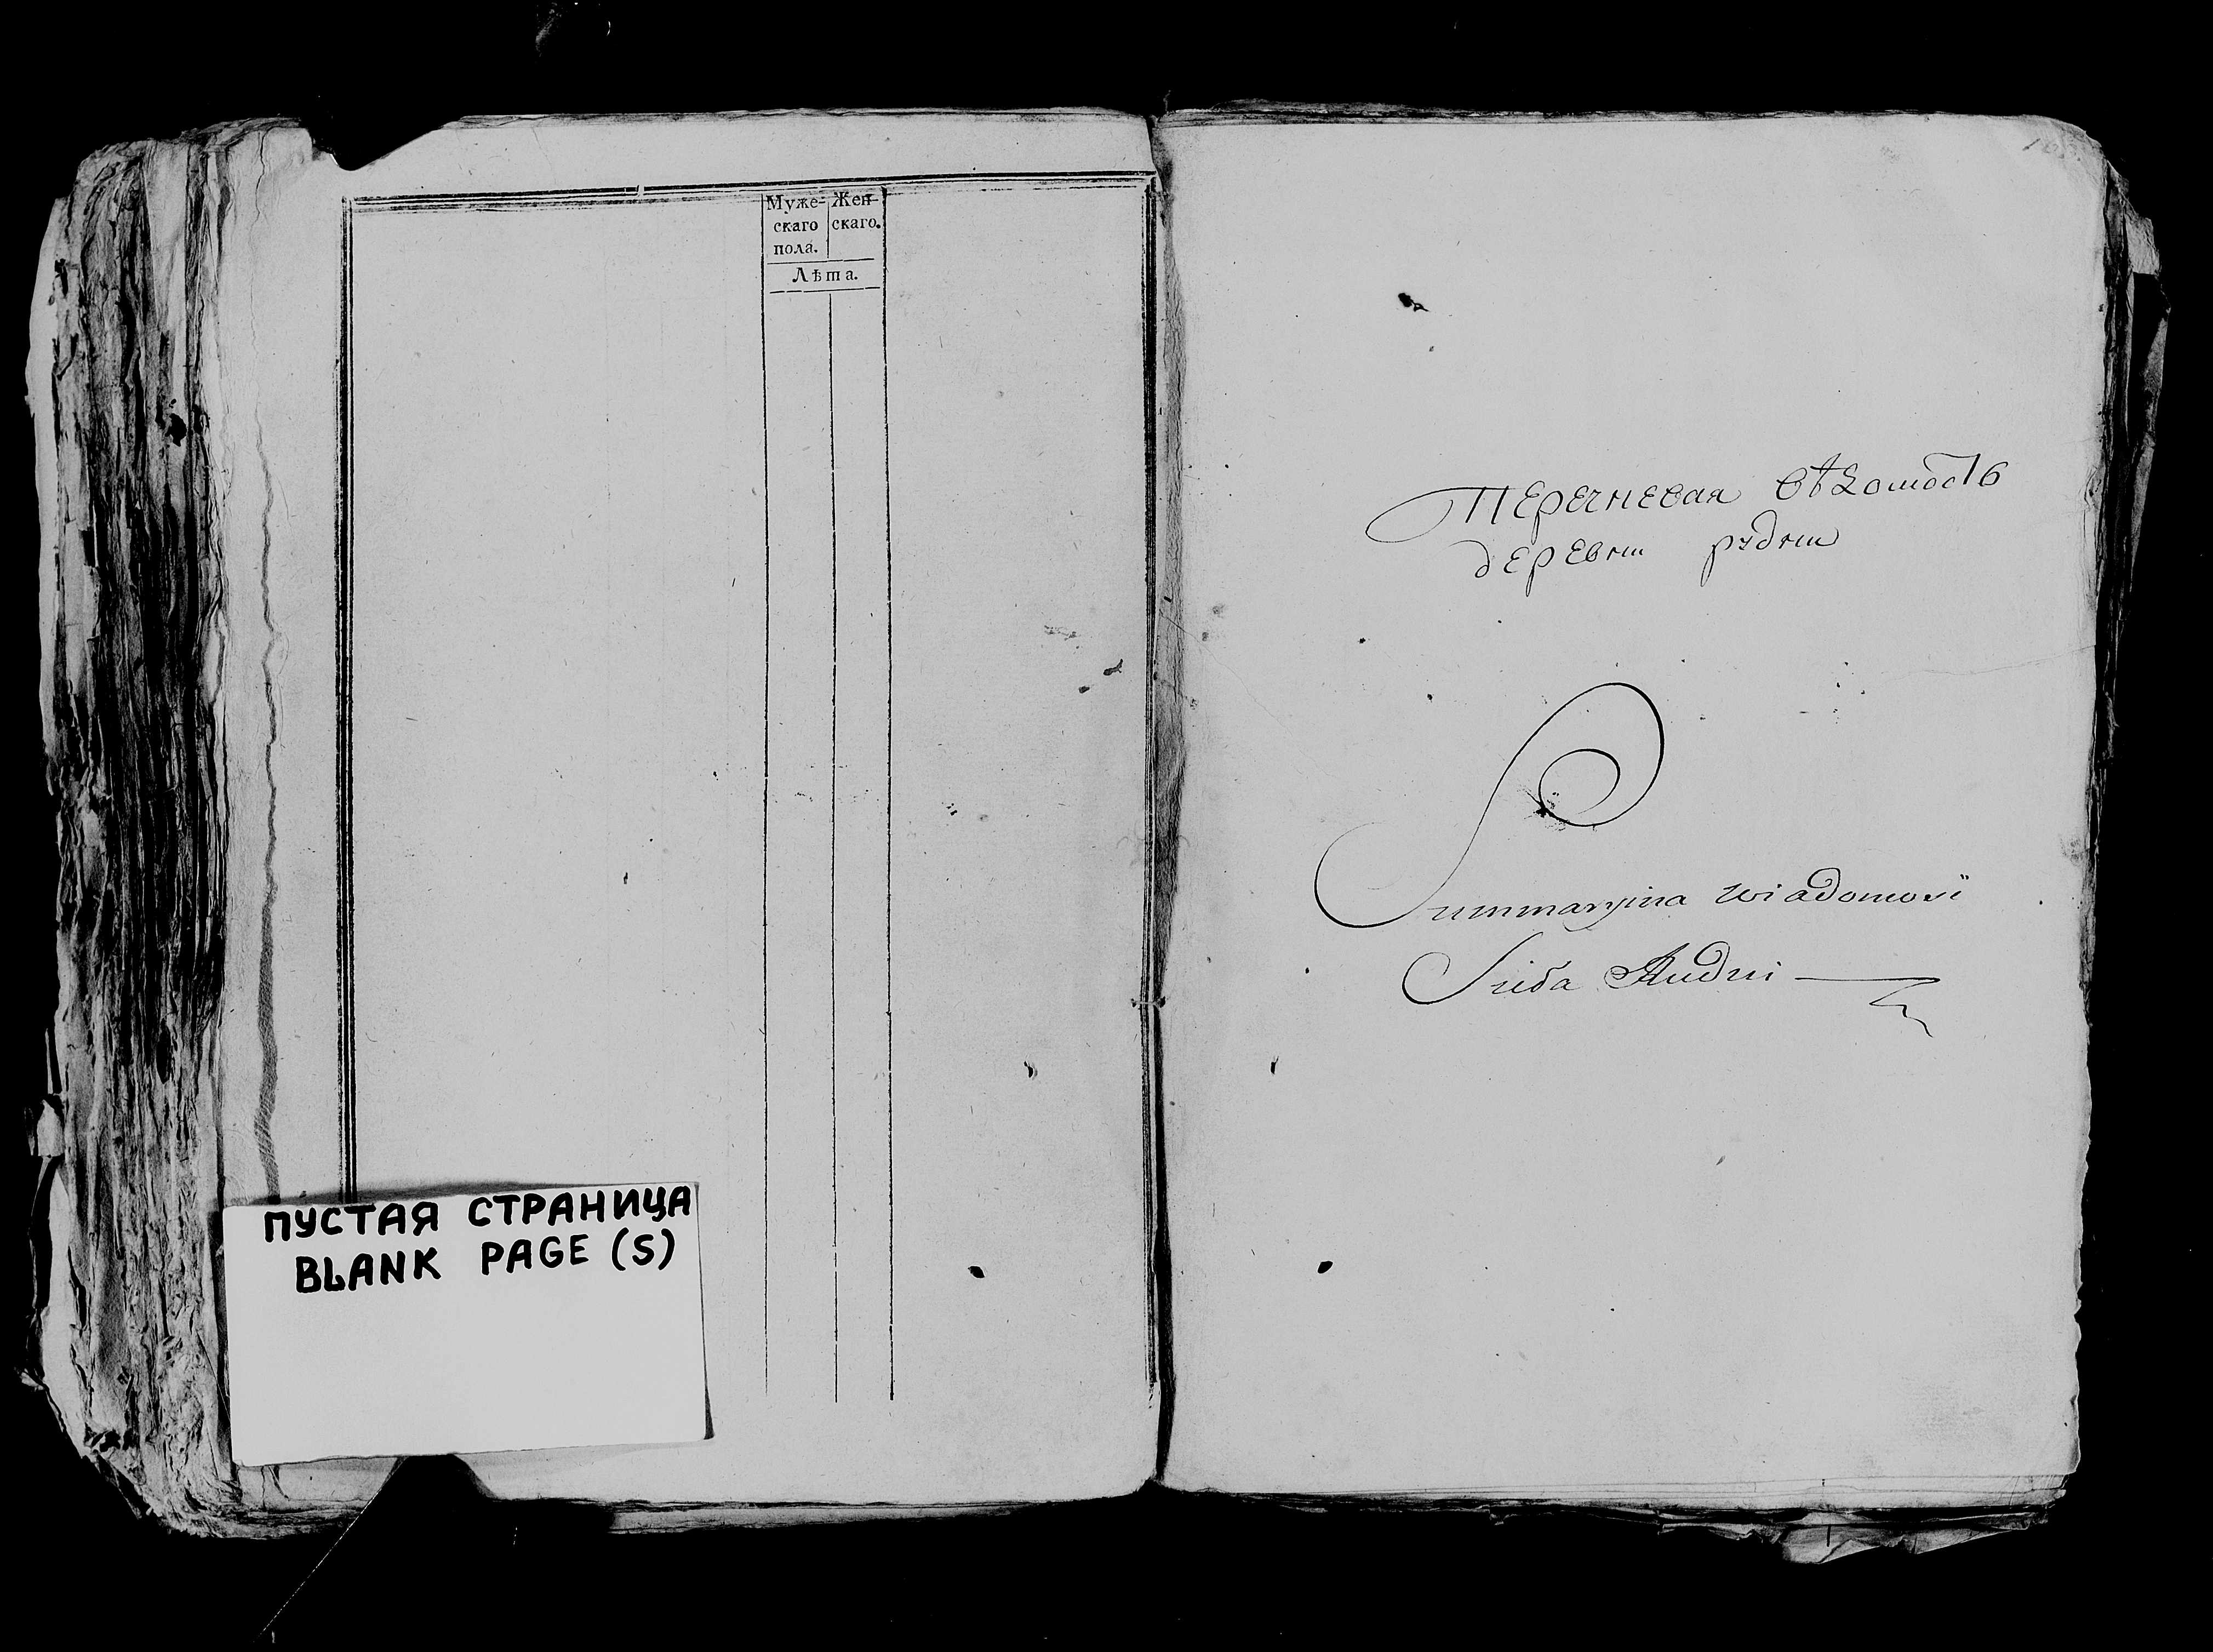 Муже-
скаго
пола.
Жен-
скаго.
Лѣта.
ПУСТАЯ СТРАНИЦА
BLANK PAGE (S)
Перечневая вѣдомость
деревни рудни
Summaryina wiadomosi
Rudni